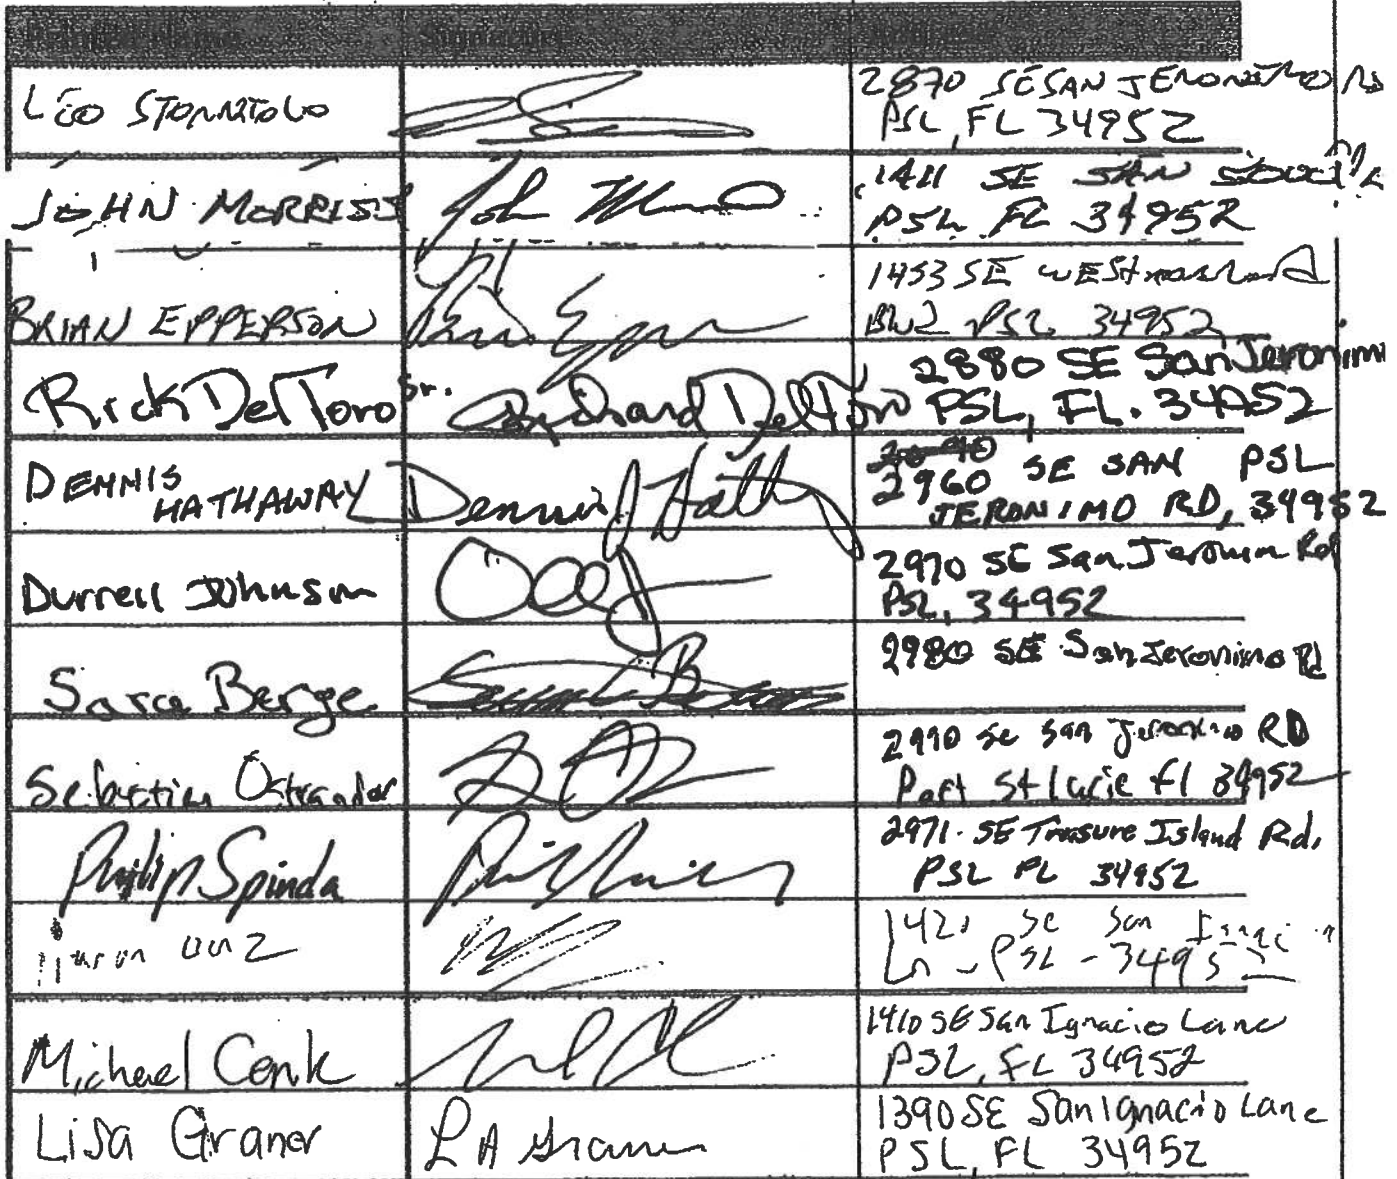 Printed Name Signature
LEO
2870 SE SAN JERONIMO RD
PSL, FL 34952
JOHN MORRISS
John
1411 SE SAN
PSL FL 34952
BRIAN EPPERSON
1453 SE WESTmoreland
BLVD PSL 34952
Rick DelToro Sr.
Richard DelToro
2880 SE San Jeronimo
PSL, FL. 34952
DENNIS
HATHAWAY
Dennis J Hath
2960 SE SAN PSL
JERONIMO RD, 34952
Durrell Johnson
2970 SE San Jeronimo Rd
PSL, 34952
Sara Berge
2980 SE San Jeronimo Rd
Sebastien Ostrander
2990 Se San Jeronimo RD
Port St Lucie fl 34952
Philip Spinda
2971 SE Treasure Island Rd.
PSL FL 34952
1421 Se San
Ln - PSL - 34952
Michael Cenk
1410 SE San Ignacio Lane
PSL, FL 34952
Lisa Graner
L A Graner
1390 SE San Ignacio Lane
PSL, FL 34952